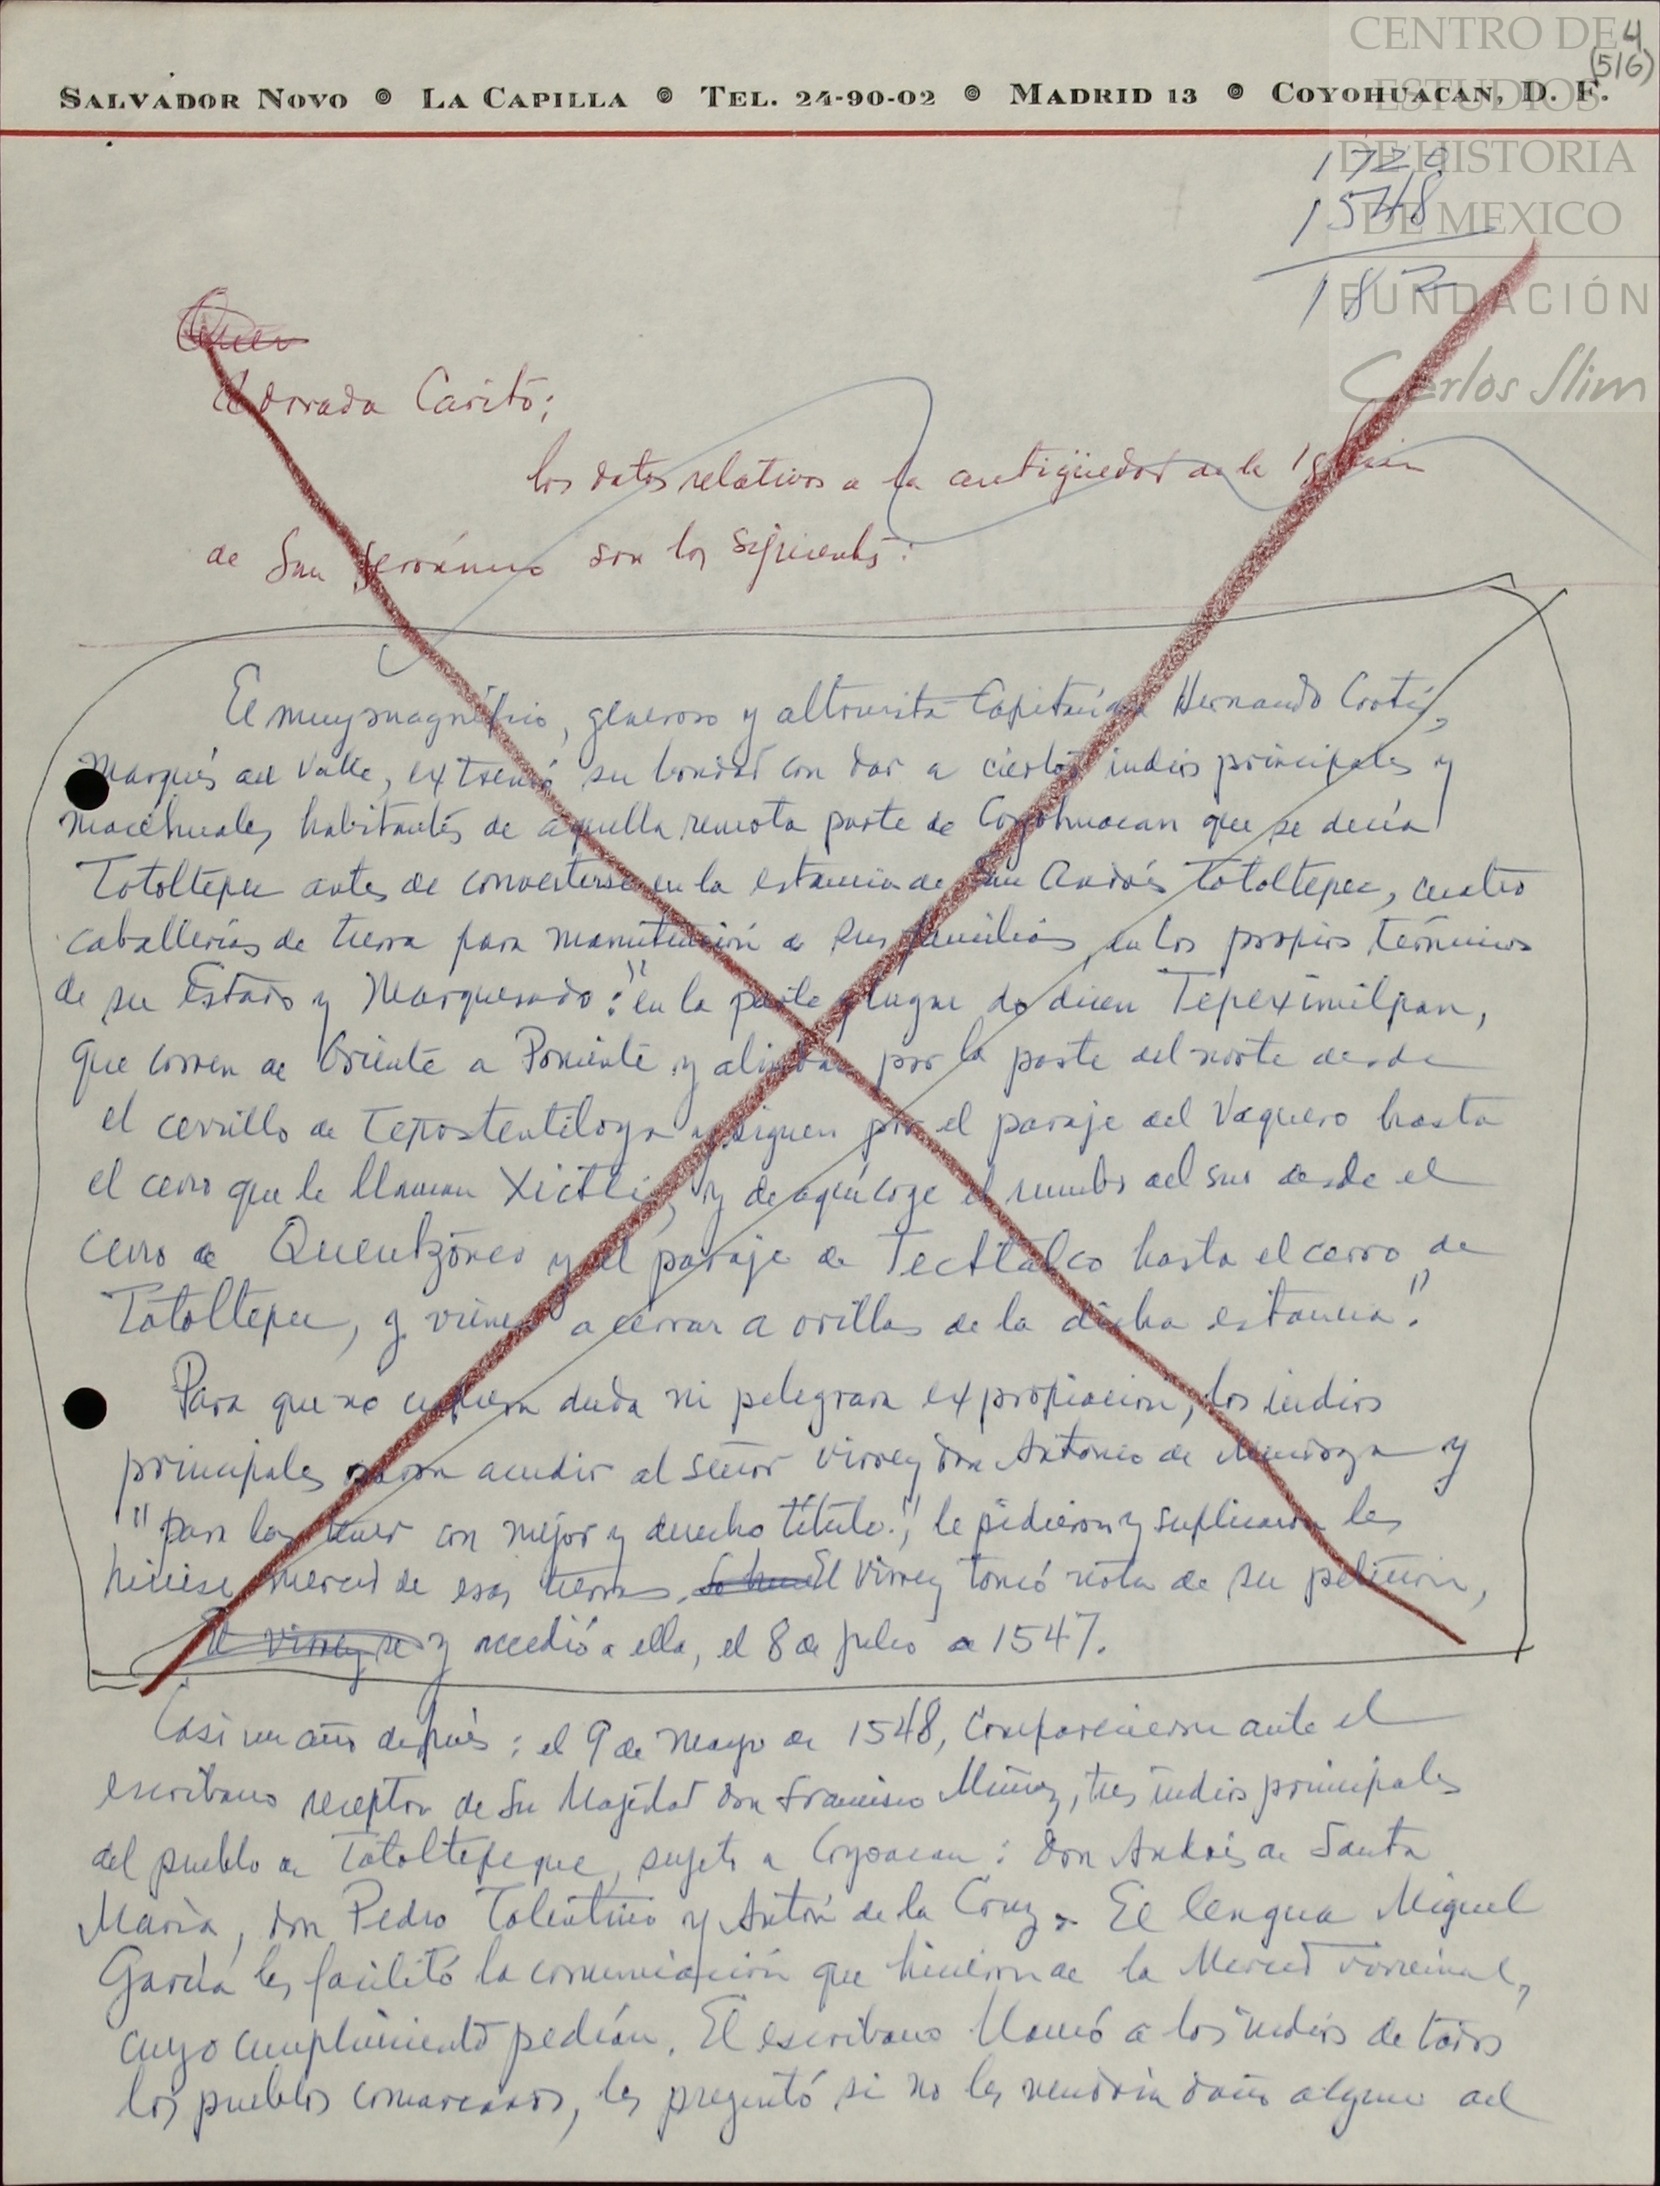 CENTRO DE
ESTUDIOS
DE HISTORIA
DE MEXICO
FUNDACIÓN
Carlos Slim
4
(5/6)
SALVADOR NOVO ● LA CAPILLA ● TEL. 24-90-02 ● MADRID 13 ● COYOHUACAN, D. F.
1720
1548
182
Adorada Carito;
los datos relativos a la antigüedad de la Iglesia
de San Jerónimo son los siguientes:
El muy magnífico, generoso y altruista Capitán Hernando Cortés,
Marqués del Valle, extremó su bondad con dar a ciertos indios principales y
macehuales habitantes de aquella remota parte de Coyohuacan que se decía
Totoltepec antes de convertirse en la estancia de San Andrés Totoltepec, cuatro
caballerías de tierra para manutención de sus familias en los propios términos
de su Estado y Marquesado: "en la parte y lugar do dicen Tepeximilpan,
que corren de Oriente a Poniente y alindan por la parte del norte desde
el cerrillo de Tepostentiloya y siguen por el paraje del Vaquero hasta
el cerro que le llaman Xictli, y de aquí coge el rumbo del sur desde el
cerro de Quentzoneo y el paraje de Tectlalco hasta el cerro de
Totoltepec, y viene a cerrar a orillas de la dicha estancia."
Para que no cupiera duda ni peligrara expropiación, los indios
principales acudir al señor Virrey don Antonio de Mendoza y
"para las tener con mejor y derecho título", le pidieron y suplicaron les
hiciese merced de esas tierras. El Virrey tomó nota de su petición,
El Virrey se y accedió a ella, el 8 de julio de 1547.
Casi un año después: el 9 de Mayo de 1548, comparecieron ante el
escribano receptor de Su Majestad don Francisco Muñoz, tres indios principales
del pueblo de Totoltepeque, sujeto a Coyoacan: don Andrés de Santa
María, don Pedro Tolentino y Antón de la Cruz. El lengua Miguel
García les facilitó la comunicación que hicieron de la Merced virreinal,
cuyo cumplimiento pedían. El escribano llamó a los indios de todos
los pueblos comarcanos, les preguntó si no les vendría daño alguno del